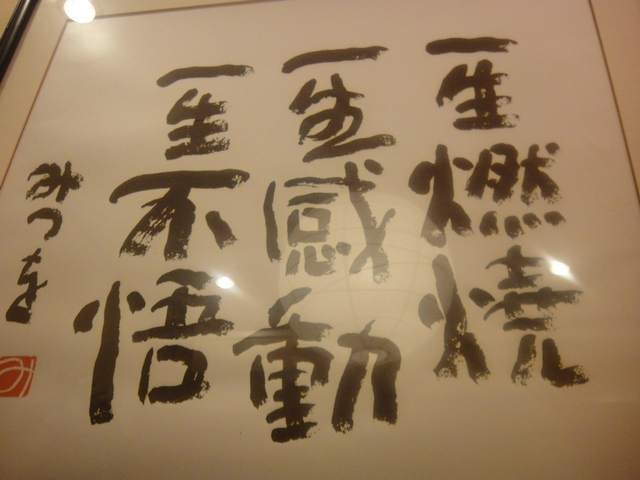 一生燃燒
一生感動
一生不悟
みつを